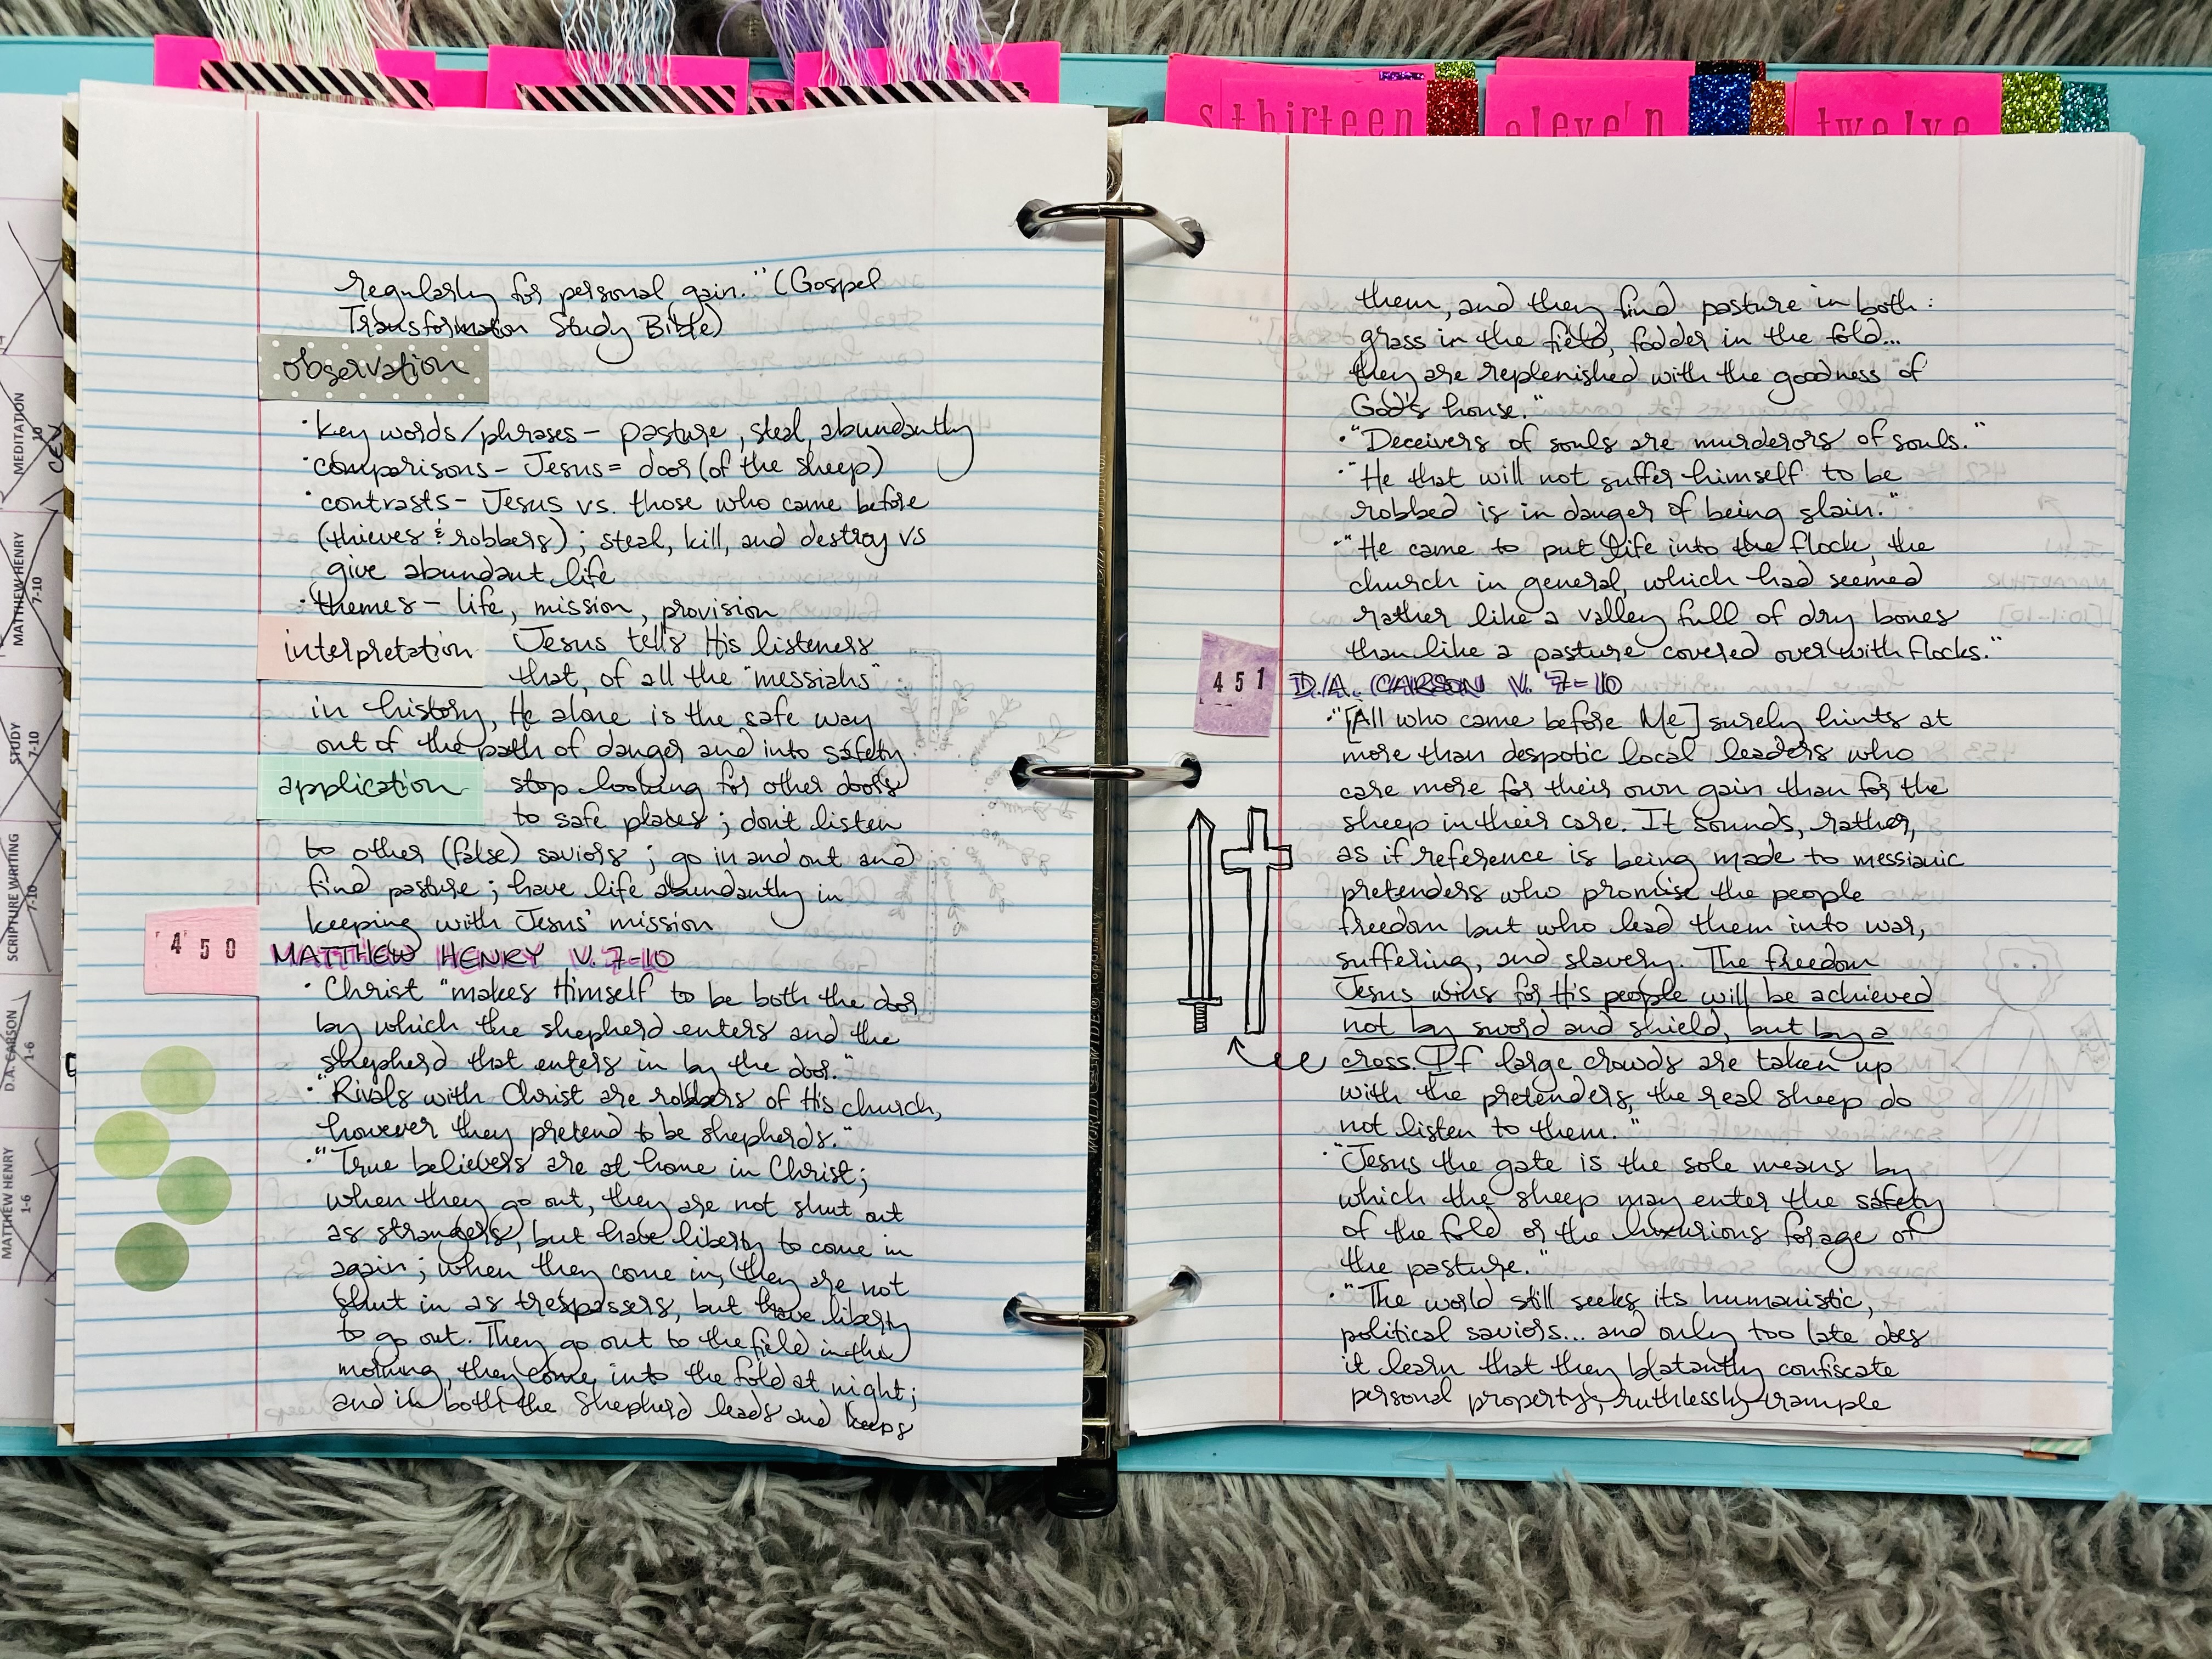 sthirteen
eleve'n
twelve
MEDITATION
10
CEV
MATTHEW HENRY
7-10
STUDY
7-10
SCRIPTURE WRITING
7-10
D.A. CARSON
1-6
MATTHEW HENRY
1-6
regularly for personal gain." (Gospel
Transformation Study Bible)
observation
·key words/phrases – pasture, steal, abundantly
·comparisons – Jesus = door (of the sheep)
·contrasts – Jesus vs. those who came before
(thieves & robbers); steal, kill, and destroy vs
give abundant life
·themes – life, mission, provision
interpretation Jesus tells His listeners
that, of all the "messiahs"
in history, He alone is the safe way
out of the path of danger and into safety.
application stop looking for other doors
to safe places; don't listen
to other (false) saviors; go in and out and
find pasture; have life abundantly in
keeping with Jesus' mission
450 MATTHEW HENRY V. 7-10
· Christ "makes Himself to be both the door
by which the shepherd enters and the
shepherd that enters in by the door."
·"Rivals with Christ are robbers of His church,
however they pretend to be shepherds."
·"True believers are at home in Christ;
when they go out, they are not shut out
as strangers, but have liberty to come in
again; when they come in, they are not
shut in as trespassers, but have liberty
to go out. They go out to the field in the
morning, they come into the fold at night;
and in both the Shepherd leads and keeps
them, and they find pasture in both:
grass in the field, fodder in the fold...
they are replenished with the goodness of
God's house."
·"Deceivers of souls are murderors of souls."
·"He that will not suffer himself to be
robbed is in danger of being slain."
·"He came to put life into the flock, the
church in general, which had seemed
rather like a valley full of dry bones
than like a pasture covered over with flocks."
451 D.A. CARSON V. 7-10
·"[All who came before Me] surely hints at
more than despotic local leaders who
care more for their own gain than for the
sheep in their care. It sounds, rather,
as if reference is being made to messianic
pretenders who promise the people
freedom but who lead them into war,
suffering, and slavery. The freedom
Jesus wins for His people will be achieved
not by sword and shield, but by a
cross. If large crowds are taken up
with the pretenders, the real sheep do
not listen to them."
·"Jesus the gate is the sole means by
which the sheep may enter the safety
of the fold or the luxurious forage of
the pasture."
·"The world still seeks its humanistic,
political saviors... and only too late does
it learn that they blatantly confiscate
personal property, ruthlessly trample